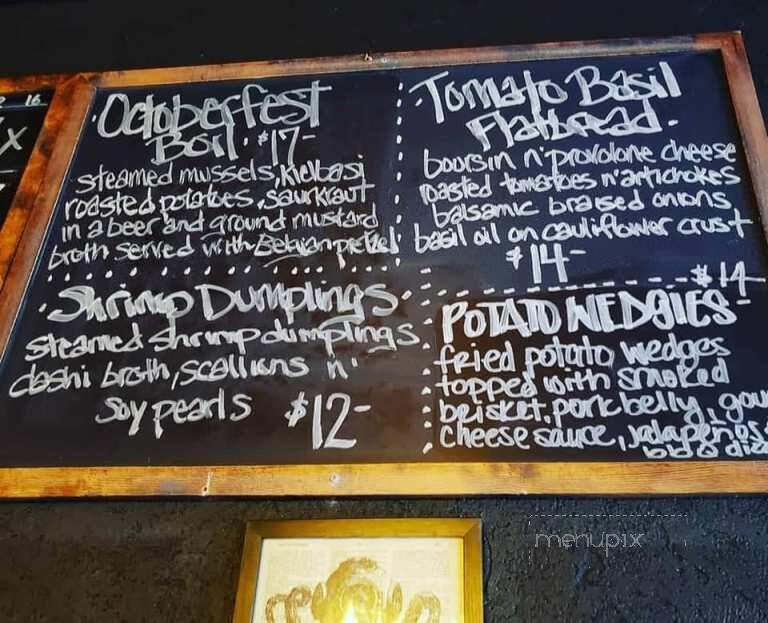 2 16
X
Octoberfest
Boil. $17-
steamed mussels, Kielbasi
roasted potatoes, saurkraut
in a beer and ground mustard
broth served with Belgian pretzel
Tomato Basil
Flatbread.
boursin n' provolone cheese
roasted tomatoes n' artichokes
balsamic braised onions
basil oil on cauliflower crust
$14-
Shrimp Dumplings.
steamed shrimp dumplings
dashi broth, scallions n'
soy pearls $12-
$14-
POTATO WEDGIES
fried potato wedges
topped with smoked
brisket, pork belly, gou
cheese sauce, jalapeños
menupix